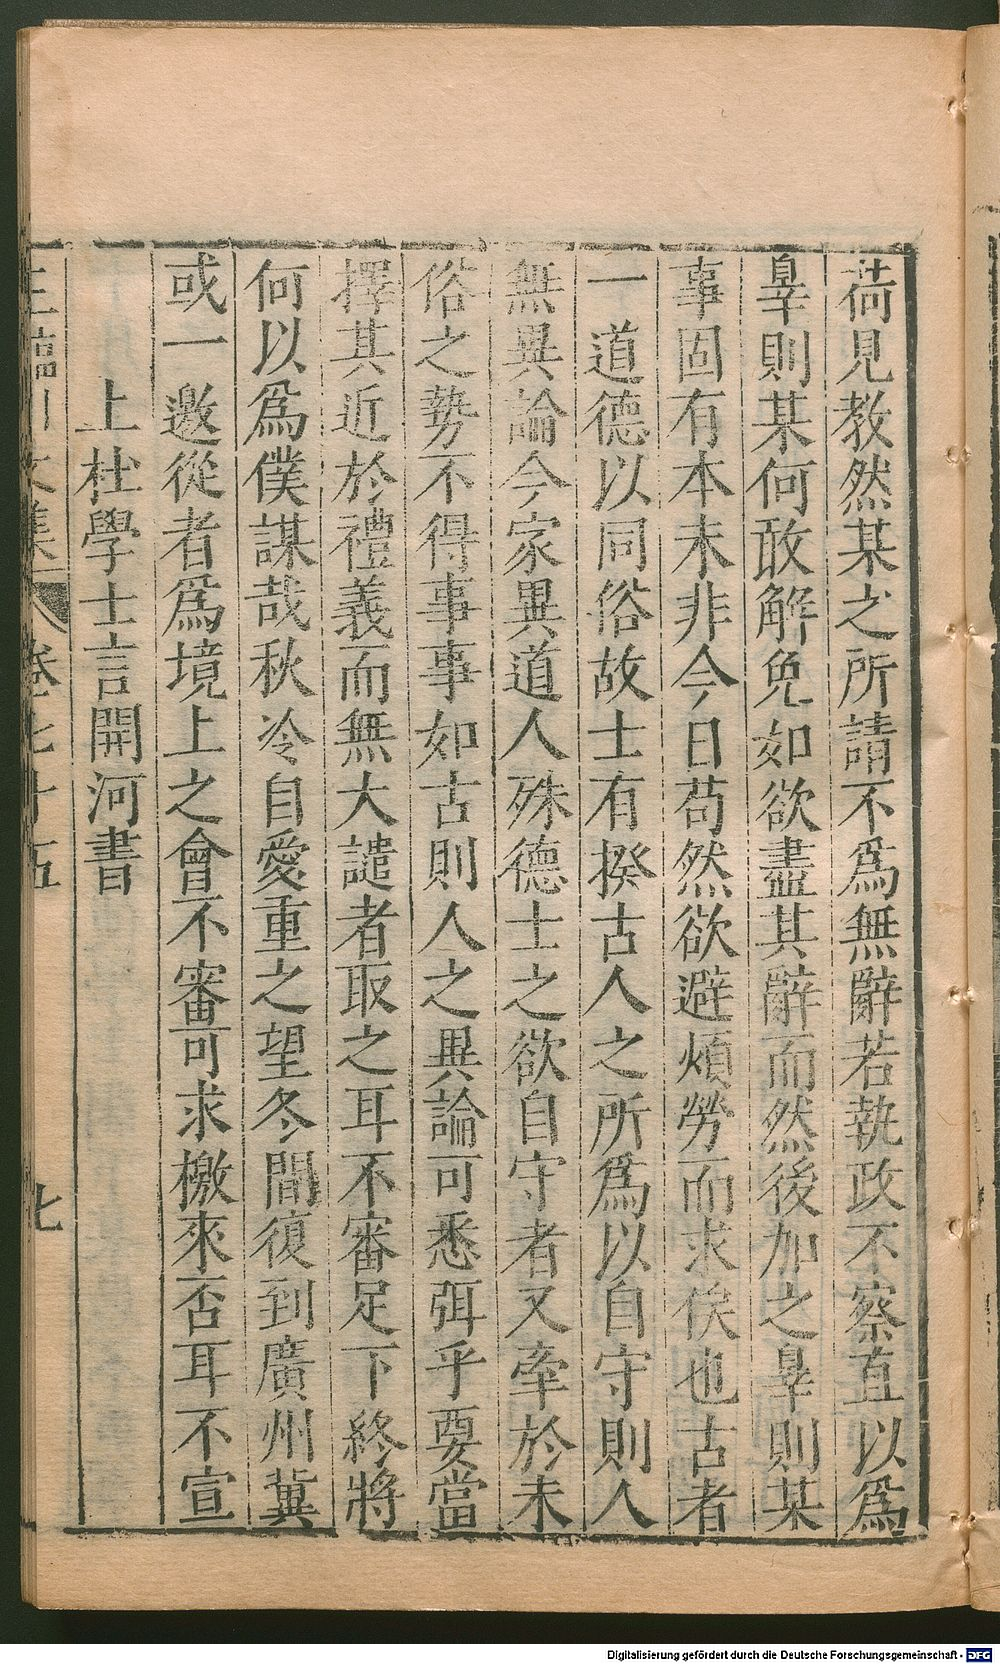 荷見教然某之所請不爲無辭若執政不察直以爲
辠則某何敢解免如欲盡其辭而然後加之辠則某
事固有本末非今日苟然欲避煩勞而求佚也古者
一道德以同俗故士有揆古人之所爲以自守則人
無異論今家異道人殊德士之欲自守者又牽於末
俗之勢不得事事如古則人之異論可悉弭乎要當
擇其近於禮義而無大譴者取之耳不審足下終將
何以爲僕謀哉秋冷自愛重之望冬間復到廣州冀
或一邀從者爲境上之會不審可求檄來否耳不宣
上杜學士言開河書
王臨川文集 卷七十五 七
Digitalisierung gefördert durch die Deutsche Forschungsgemeinschaft - DFG